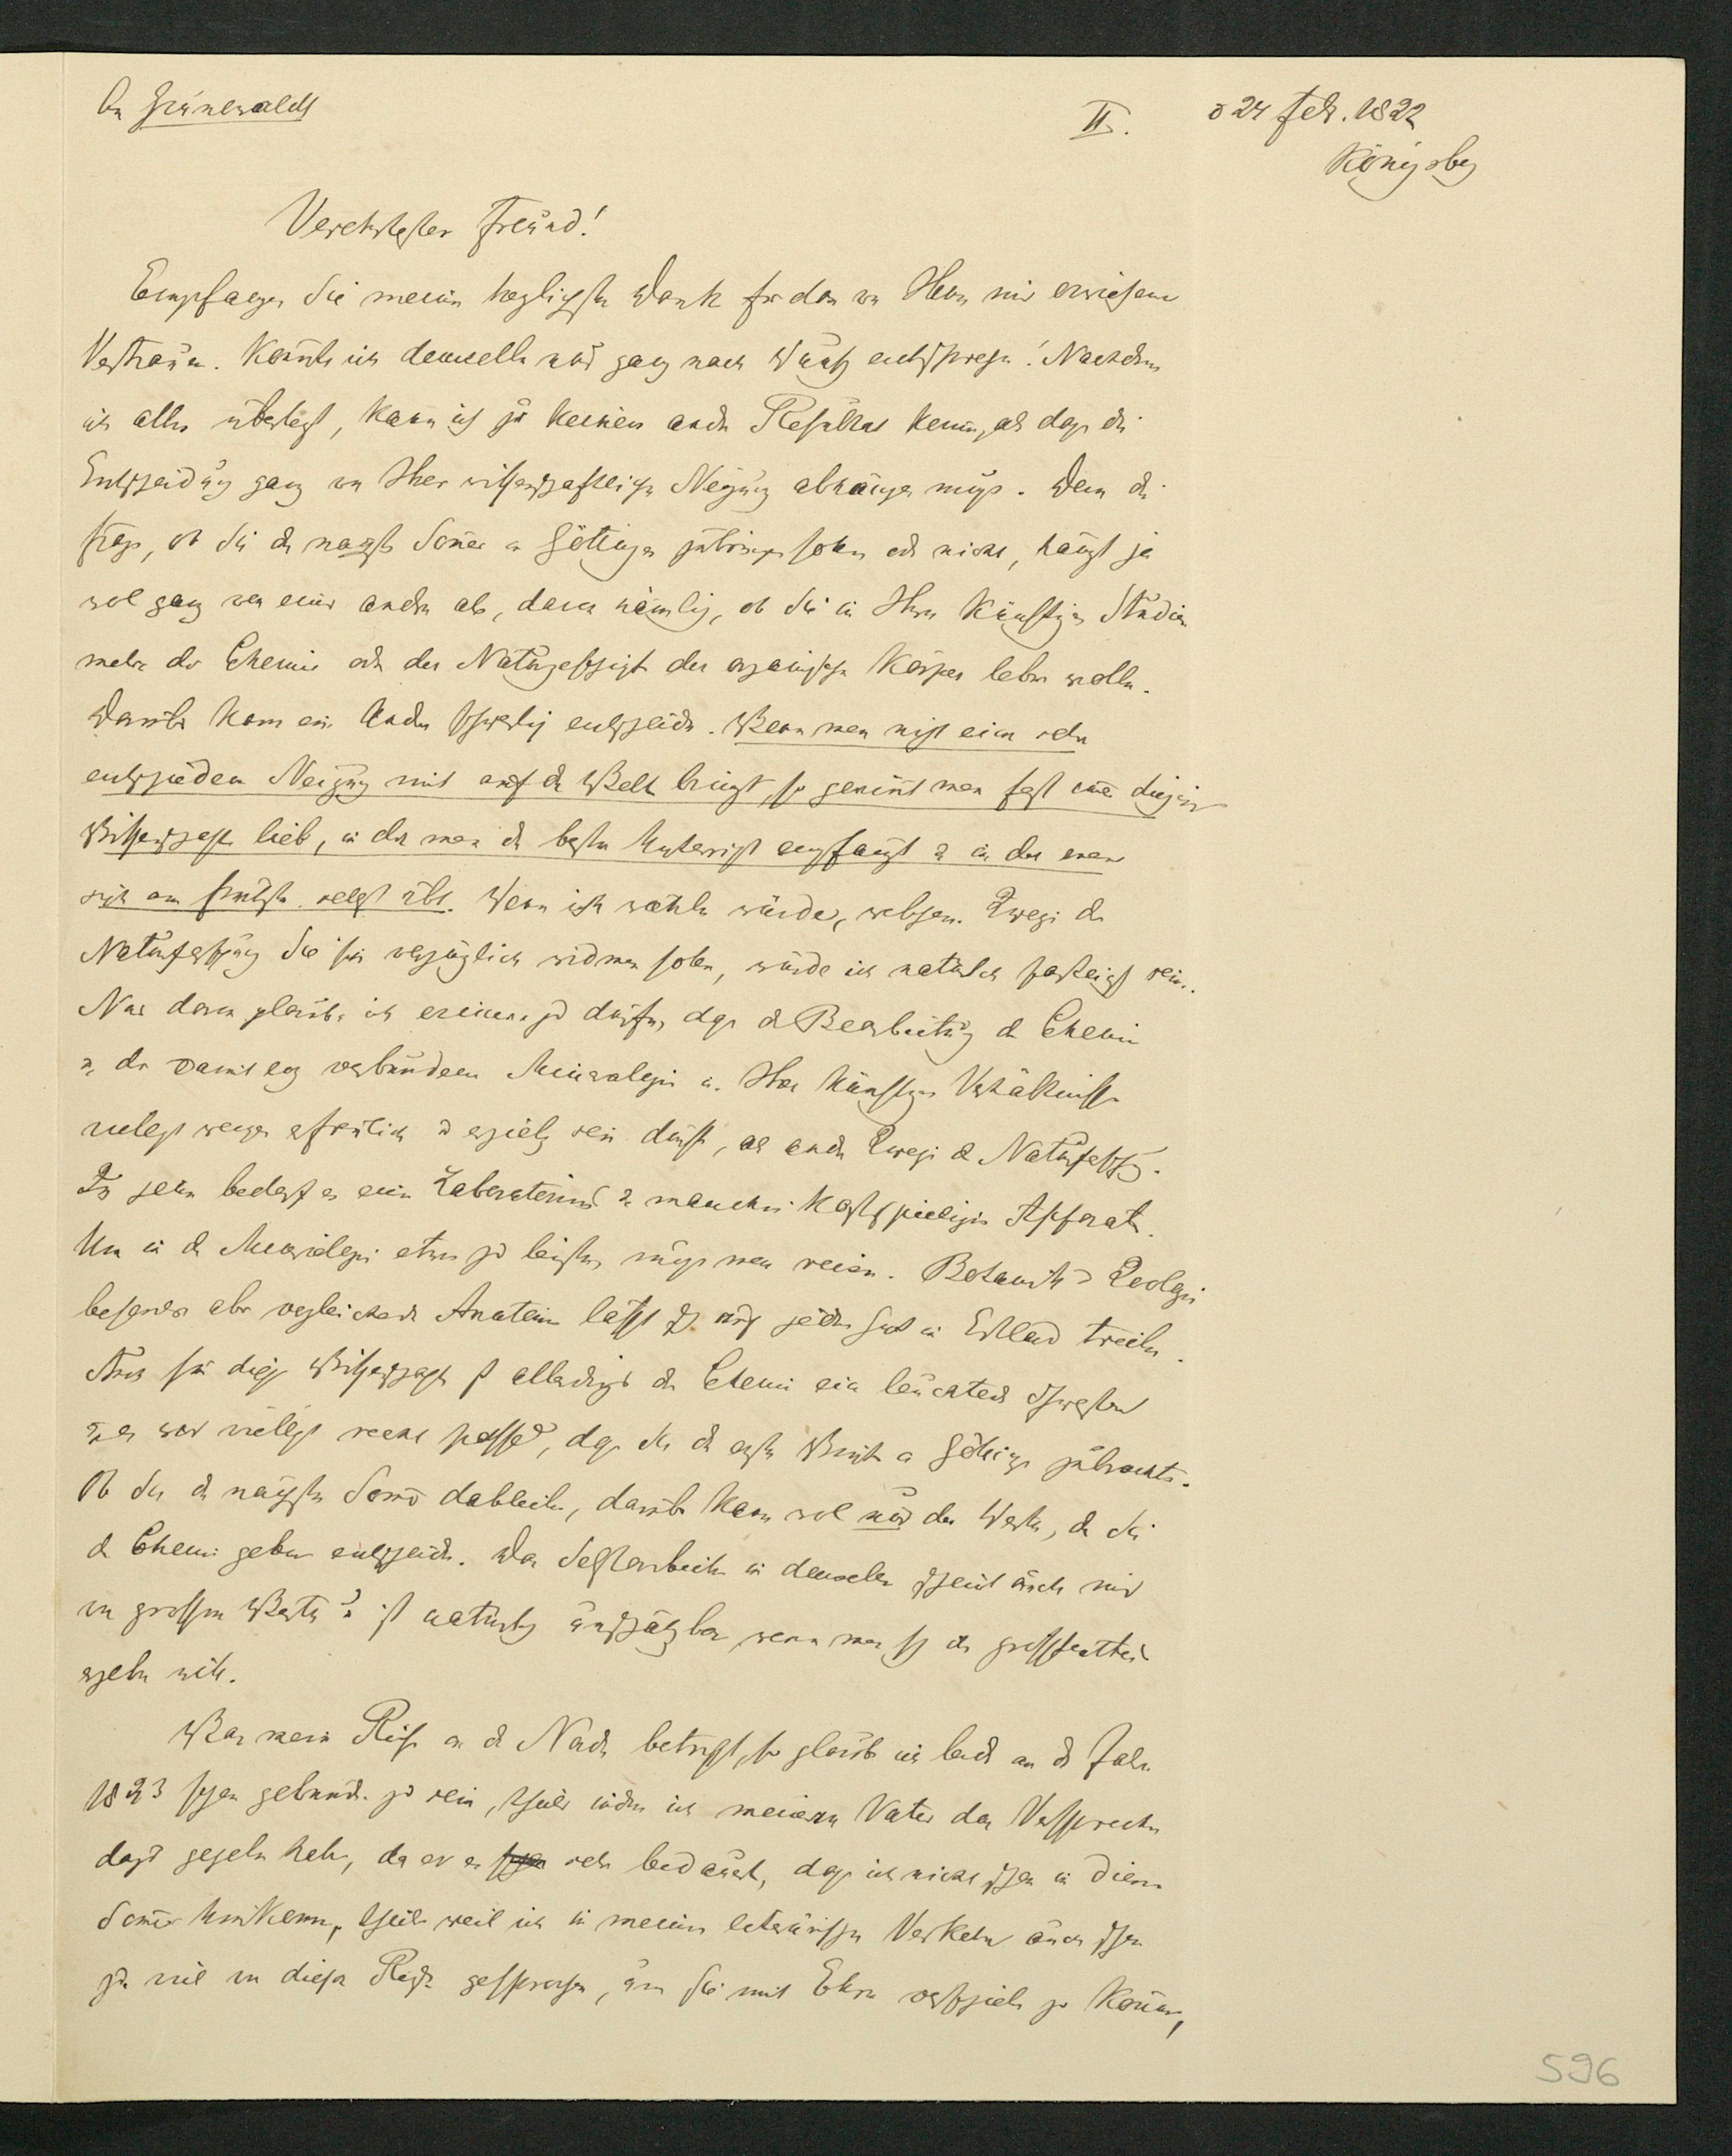 An Grünewaldt
II.
d 24 Feb. 1822
Königsberg
Verehrtester Freund!
Empfangen Sie meinen herzlichsten Dank für das von Ihnen mir erwiesene
Vertrauen. Könnte ich demselben nur ganz nach Wunsch entsprechen! Nachdem
ich alles überlegt, kann ich zu keinem andern Resultat kommen, als dass die
Entscheidung ganz von Ihrer wissenschaftlichen Neigung abhängen muss. Denn die
Frage, ob Sie den nächsten Sommer in Göttingen zubringen sollen oder nicht, hängt ja
wol ganz von einer andern ab, davon nämlich, ob Sie in Ihren künftigen Studien
mehr der Chemie oder der Naturgeschichte der organischen Körper leben wollen.
Darüber kann ein Andrer schwerlich entscheiden. Wenn man nicht eine sehr
entschiedene Neigung mit auf die Welt bringt, so gewinnt man fast immer diejenige
Wissenschaft lieb, in der man den besten Unterricht empfängt u in der man
sich am frühsten selbst übt. Wenn ich wählen würde, welchem Zweige der
Naturforschung Sie sich vorzüglich widmen sollen, würde ich natürlich partheiisch sein.
Nur daran glaube ich erinnern zu dürfen, dass die Bearbeitung der Chemie
u der damit eng verbundenen Mineralogie in Ihren künftigen Verhältnissen
vielleicht weniger erfreulich u ergiebig sein dürfte, als andre Zweige der Naturforschg.
Zu jener bedarf es eines Laboratoriums u manches kostspieligen Apparats.
Um in der Mineralogie etwas zu leisten, muss man reisen. Botanik u Zoologie
besonders aber vergleichende Anatomie lässt sich auf jedem Gut in Estland treiben.
Auch für diese Wissenschaft ist allerdings die Chemie eine leuchtende Schwester
u es war vielleicht recht passend, dass Sie den ersten Winter in Göttingen zubrachten.
Ob Sie den nächsten Sommer dableiben, darüber kann wol nur der Werth, den Sie
der Chemie geben entscheiden. Das Selbstarbeiten in derselben scheint auch mir
von grossem Werthe u ist natürlich unschätzbar wenn man sich der Wissenschaft
ergeben will.
Was meine Reise in den Norden betrifft, so glaube ich leider an das Jahr
1823 schon gebunden zu sein, theils indem ich meinem Vater das Versprechen
dazu gegeben habe, da er es sehr bedauert, dass ich nicht schon in diesem
Sommer hinkomme, theils weil ich in meinem literärischen Verkehr auch schon
zu viel von dieser Reise gesprochen, um sie mit Ehren verschieben zu können,
596